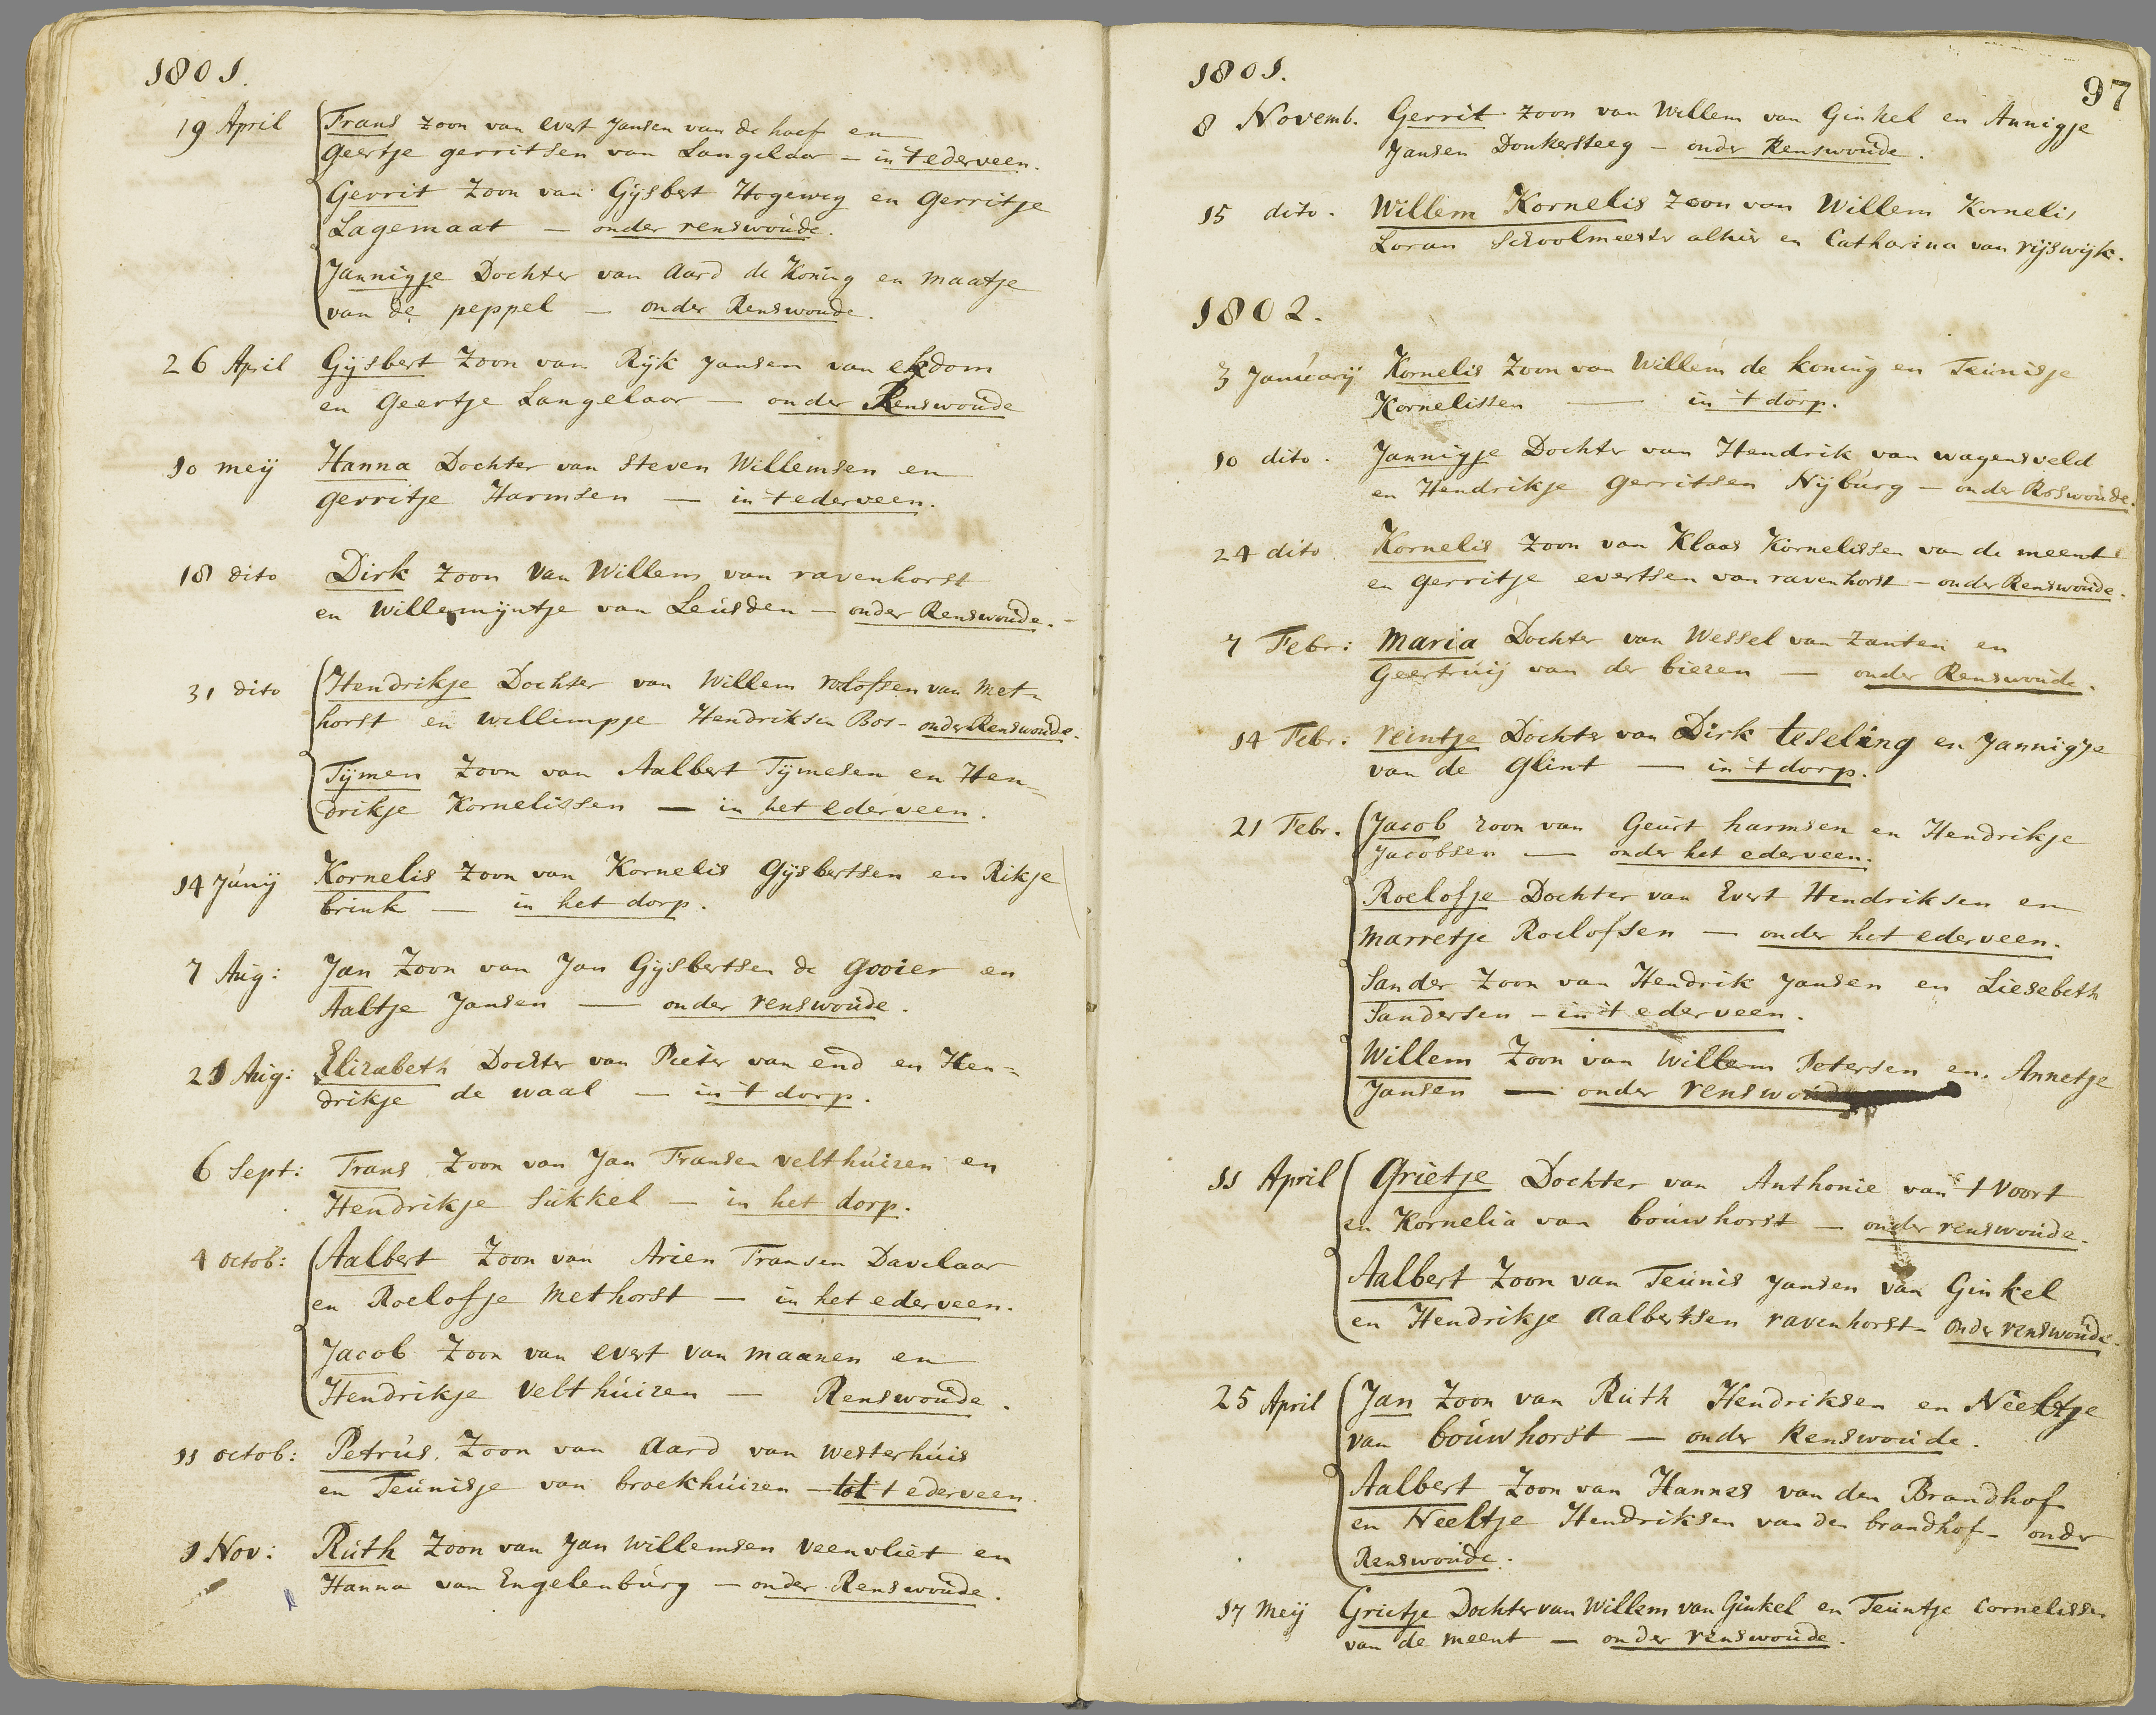 1801.
19 April Frans zoon van evert Jansen van de hoef en
geertje gerritsen van Langelaar - in 't ederveen.
Gerrit Zoon van Gijsbert Hogeweg en gerritje
Lagemaat - onder renswoude.
Jannigje Dochter van Aard de Koning en maatje
van de peppel - onder Renswoude.
26 April Gijsbert Zoon van Rijk Jansen van ekdom
en Geertje Langelaar - onder Renswoude
10 meij Hanna Dochter van Steven Willemsen en
gerritje Harmsen - in 't ederveen.
18 dito Dirk zoon van Willem van ravenhorst
en Willemijntje van Leusden - onder Renswoude. -
31 dito Hendrikje Dochter van Willem rolofsen van Met=
horst en willempje Hendriksen Bos - onder Renswoude.
Tijmen Zoon van Aalbert Tijmesen en Hen=
drikje Kornelissen - in het ederveen.
14 Junij Kornelis Zoon van Kornelis Gijsbertsen en Rikje
brink - in het dorp.
7 Aug: Jan Zoon van Jan Gijsbertsen de gooier en
Aaltje Jansen - onder renswoude.
21 Aug: Elizabeth Dochter van Pieter van end en Hen=
drikje de waal - in 't dorp.
6 Sept: Frans Zoon van Jan Fransen velthuizen en
Hendrikje Sukkel - in het dorp.
4 octob: Aalbert Zoon van Arien Fransen Davelaar
en Roelofje Methorst - in het ederveen.
Jacob Zoon van evert van maanen en
Hendrikje Velthuizen - Renswoude.
11 octob: Petrus Zoon van Aard van westerhuis
en Teunisje van broekhuizen - tot 't ederveen.
1 Nov: Ruth Zoon van Jan Willemsen veenvliet en
Hanna van Engelenburg - onder Renswoude.
97
1801.
8 Novemb. Gerrit zoon van Willem van Ginkel en Annigje
Jansen Donkersteeg - onder Renswoude.
15 dito. Willem Kornelis Zoon van Willem Kornelis
Loran Schoolmeester alhier en Catharina van rijswijk.
1802.
3 Januarij Kornelis Zoon van Willem de koning en Teunisje
Kornelissen - in 't dorp.
10 dito. Jannigje Dochter van Hendrik van wagensveld
en Hendrikje gerritsen Nijburg - onder Reswoude.
24 dito Kornelis zoon van Klaas Kornelissen van de meent
en gerritje evertsen van ravenhorst - onder Renswoude.
7 Febr: Maria Dochter van Wessel van Zanten en
Geertruij van der biezen - onder Renswoude.
14 Febr: reintje Dochter van Dirk teseling en Jannigje
van de glint - in 't dorp.
21 Febr. Jacob zoon van Geurt harmsen en Hendrikje
Jacobsen - onder het ederveen.
Roelofje Dochter van Evert Hendriksen en
Marretje Roelofsen - onder het ederveen.
Sander Zoon van Hendrik Jansen en Liesebeth
Sandersen - in 't ederveen.
Willem Zoon van Willem Petersen en Annetje
Jansen - onder renswoude
11 April Grietje Dochter van Anthonie van 't Voort
en Kornelia van bouwhorst - onder renswoude.
Aalbert Zoon van Teunis Jansen van Ginkel
en Hendrikje Aalbertsen ravenhorst - onder renswoude.
25 April Jan Zoon van Ruth Hendriksen en Neeltje
van bouwhorst - onder Renswoude.
Aalbert Zoon van Hannes van den Brandhof
en Neeltje Hendriksen van den brandhof - onder
Renswoude.
17 Meij Grietje Dochter van Willem van Ginkel en Teuntje Cornelissen
van de meent - onder renswoude.